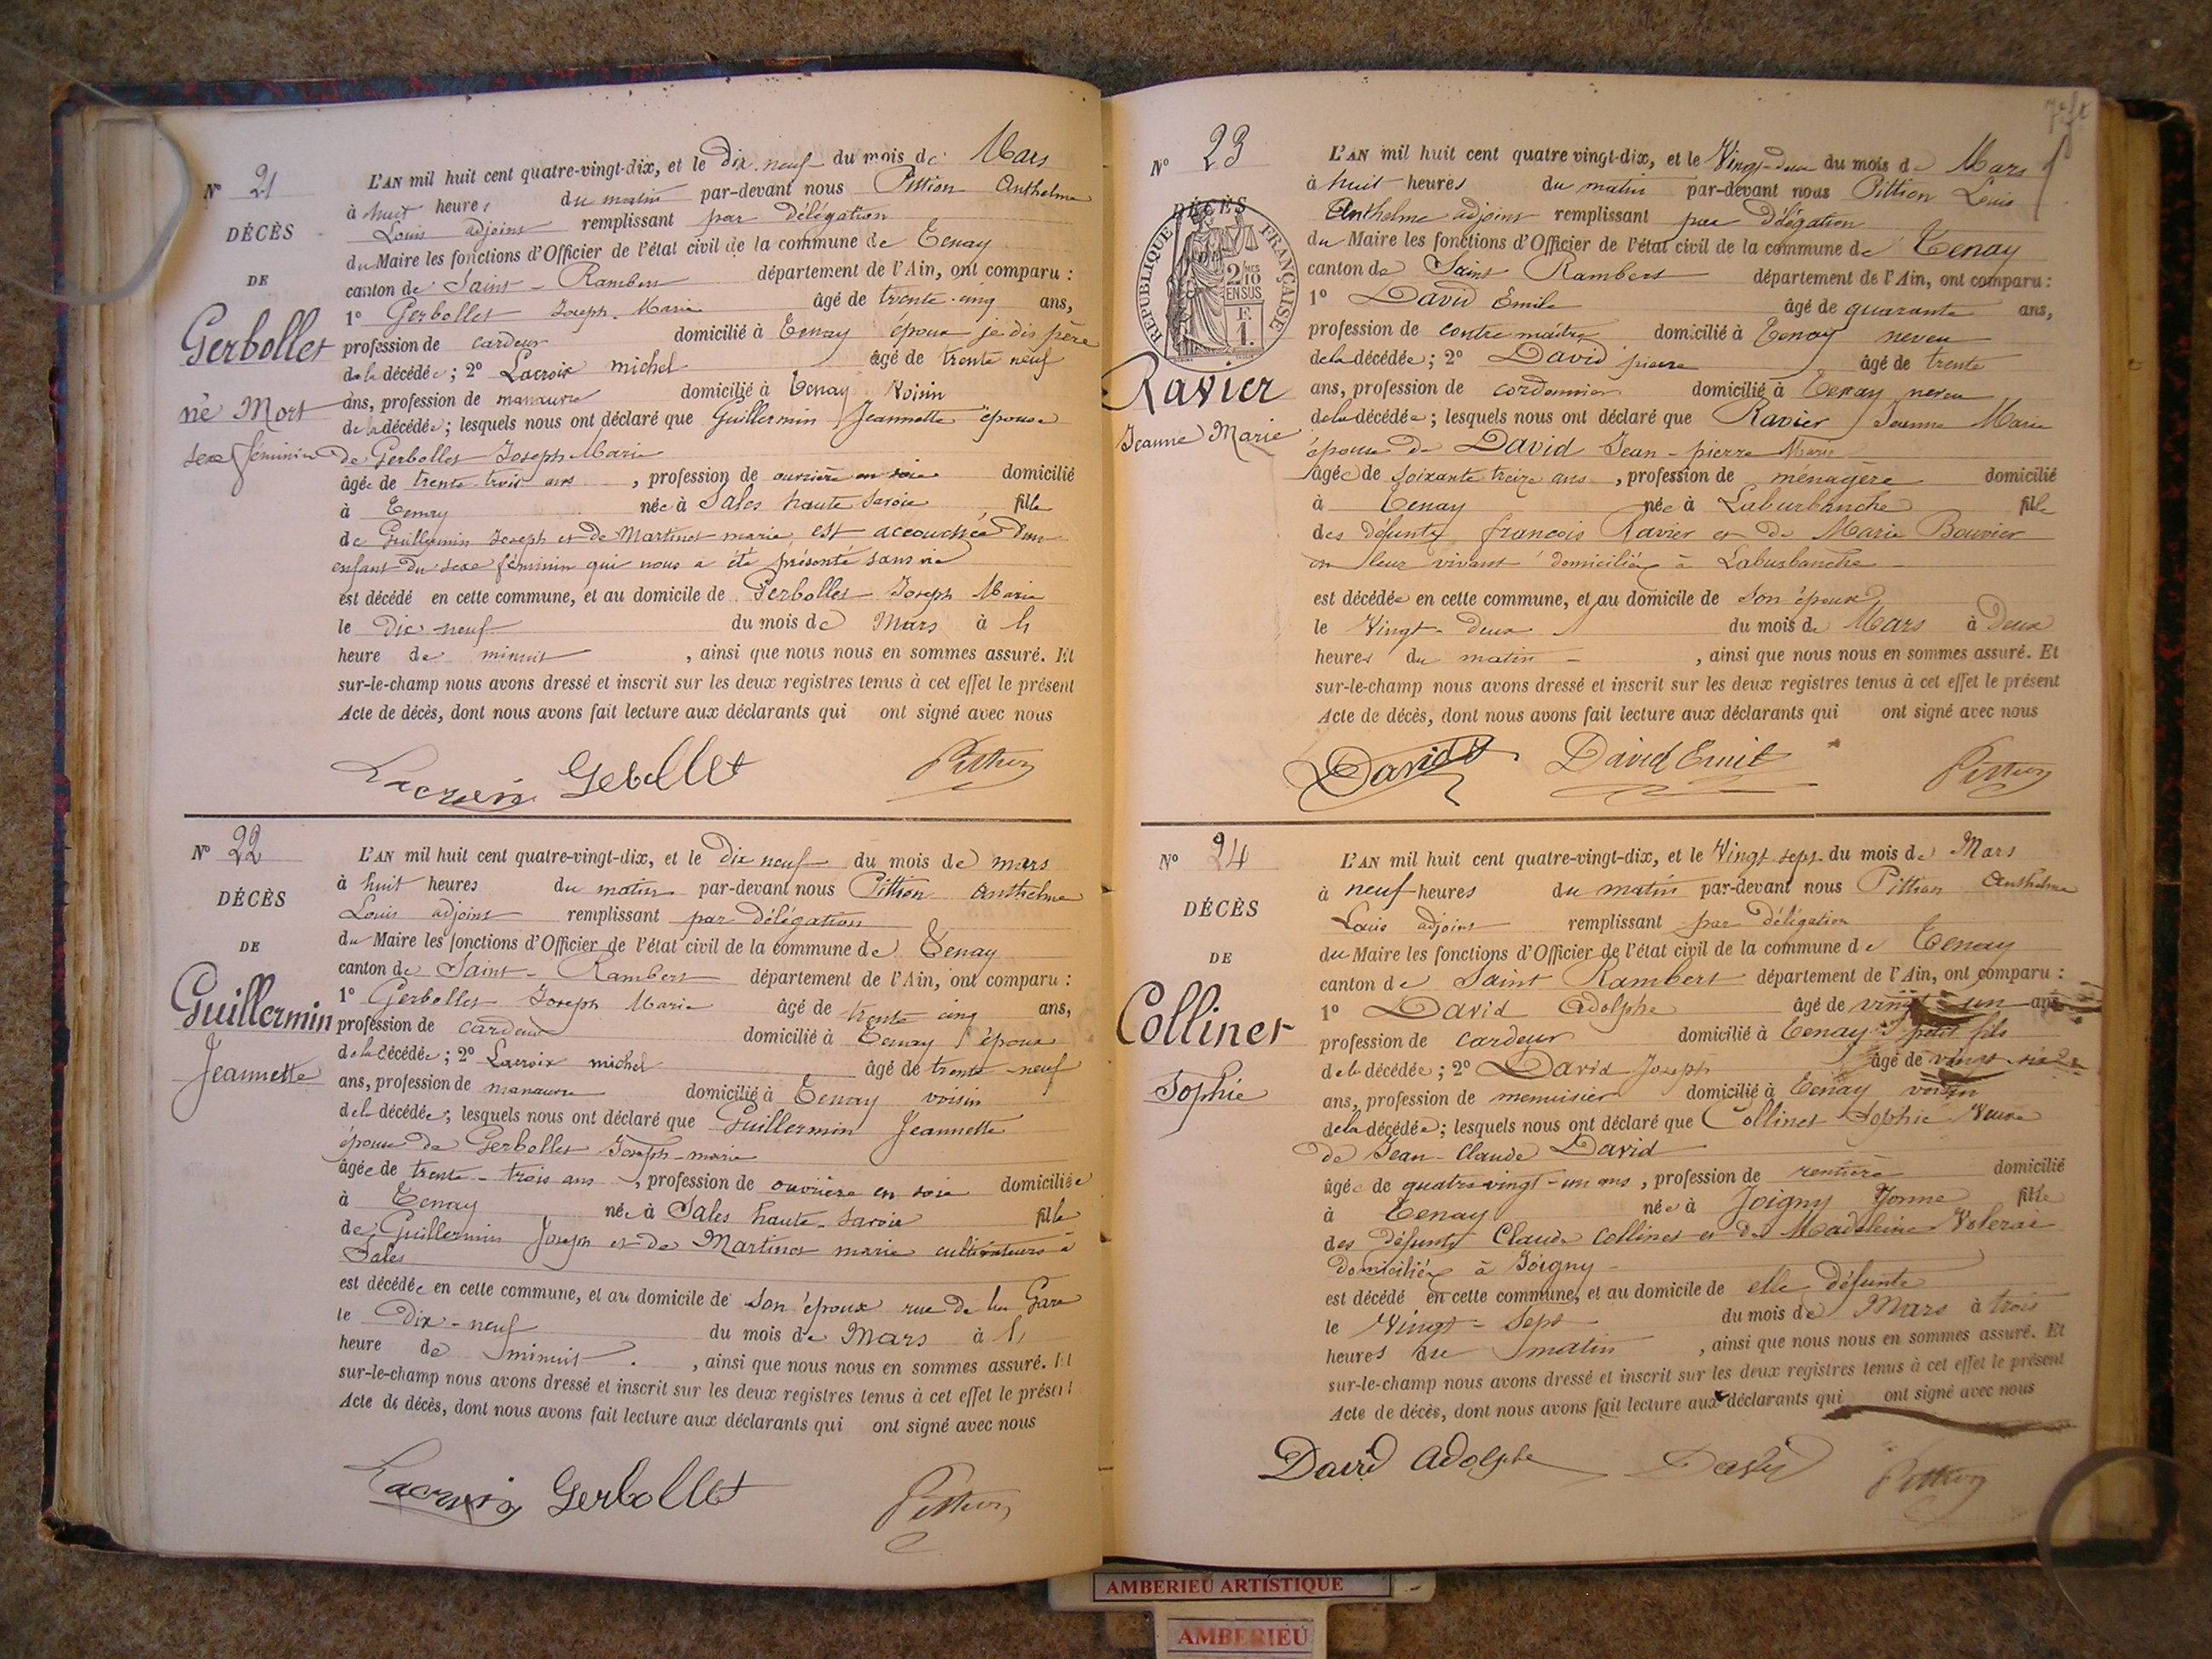 N° 21
DÉCÈS
DE
Gerbollet
né Mort
sexe féminin
L'AN mil huit cent quatre-vingt-dix, et le Dix neuf du mois de Mars
à huit heures du matin par-devant nous Pittion Anthelme
Louis adjoint remplissant par délégation
du Maire les fonctions d'Officier de l'état civil de la commune de Tenay
canton de Saint-Rambert département de l'Ain, ont comparu :
1° Gerbollet Joseph-Marie âgé de trente-cinq ans,
profession de cardeur domicilié à Tenay époux je dis père
de la décédée; 2° Lacroix michel âgé de trente neuf
ans, profession de manœuvre domicilié à Tenay Voisin
de la décédée; lesquels nous ont déclaré que Guillermin Jeannette épouse
de Gerbollet Joseph Marie
âgée de trente-trois ans, profession de ouvrière en soie domicilié
à Tenay née à Sales haute Savoie fille
de Guillermin Joseph et de Martinot marie, est accouchée d'un
enfant du sexe féminin qui nous a été présenté sans vie
est décédé en cette commune, et au domicile de Gerbollet Joseph Marie
le Dix-neuf du mois de Mars à
heure de minuit, ainsi que nous nous en sommes assuré. Et
sur-le-champ nous avons dressé et inscrit sur les deux registres tenus à cet effet le présent
Acte de décès, dont nous avons fait lecture aux déclarants qui ont signé avec nous
Lacroix Gebollet Pittion
N° 22
DÉCÈS
DE
Guillermin
Jeannette
L'AN mil huit cent quatre-vingt-dix, et le Dix neuf du mois de mars
à huit heures du matin par-devant nous Pittion Anthelme
Louis adjoint remplissant par délégation
du Maire les fonctions d'Officier de l'état civil de la commune de Tenay
canton de Saint-Rambert département de l'Ain, ont comparu :
1° Gerbollet Joseph Marie âgé de trente cinq ans,
profession de cardeur domicilié à Tenay époux
de la décédée; 2° Lacroix michel âgé de trente-neuf
ans, profession de manœuvre domicilié à Tenay voisin
de la décédée; lesquels nous ont déclaré que Guillermin Jeannette
épouse de Gerbollet Joseph-marie
âgée de trente-trois ans, profession de ouvrière en soie domiciliée
à Tenay née à Sales haute-Savoie fille
de Guillermin Joseph et de Martinot marie cultivateurs à
Sales
est décédée en cette commune, et au domicile de son époux rue de la Gare
le Dix-neuf du mois de Mars à
heure de minuit, ainsi que nous nous en sommes assuré. Et
sur-le-champ nous avons dressé et inscrit sur les deux registres tenus à cet effet le présent
Acte de décès, dont nous avons fait lecture aux déclarants qui ont signé avec nous
Lacroix Gerbollet Pittion
N° 23
DÉCÈS
RÉPUBLIQUE FRANÇAISE
2/10 MES
EN SUS
F.
1.
Ravier
Jeanne Marie
L'AN mil huit cent quatre vingt-dix, et le Vingt-deux du mois de Mars
à huit heures du matin par-devant nous Pittion Louis
Anthelme adjoint remplissant par délégation
du Maire les fonctions d'Officier de l'état civil de la commune de Tenay
canton de Saint Rambert département de l'Ain, ont comparu :
1° David Emile âgé de quarante ans,
profession de contre maître domicilié à Tenay neveu
de la décédée; 2° David pierre âgé de trente
ans, profession de cordonnier domicilié à Tenay neveu
de la décédée; lesquels nous ont déclaré que Ravier Jeanne Marie
épouse de David Jean-pierre Marie
âgée de soixante treize ans, profession de ménagère domicilié
à Tenay née à Laburbanche fille
des défunts francois Ravier et de Marie Bouvier
en leur vivant domiciliés à Laburbanche
est décédée en cette commune, et au domicile de son époux
le Vingt-deux du mois de Mars à Deux
heures du matin, ainsi que nous nous en sommes assuré. Et
sur-le-champ nous avons dressé et inscrit sur les deux registres tenus à cet effet le présent
Acte de décès, dont nous avons fait lecture aux déclarants qui ont signé avec nous
David David Emile Pittion
N° 24
DÉCÈS
DE
Collinet
Sophie
L'AN mil huit cent quatre-vingt-dix, et le Vingt sept du mois de Mars
à neuf heures du matin par-devant nous Pittion Anthelme
Louis adjoint remplissant par délégation
du Maire les fonctions d'Officier de l'état civil de la commune de Tenay
canton de Saint Rambert département de l'Ain, ont comparu :
1° David Adolphe âgé de vingt-un ans
profession de cardeur domicilié à Tenay petit fils
de la décédée; 2° David Joseph âgé de vingt six
ans, profession de menuisier domicilié à Tenay voisin
de la décédée; lesquels nous ont déclaré que Collinet Sophie Veuve
de Jean-Claude David
âgée de quatre vingt-un ans, profession de rentière domicilié
à Tenay née à Joigny Yonne fille
des défunts Claude Collinet et de Madeleine
domiciliés à Joigny
est décédé en cette commune, et au domicile de elle défunte
le Vingt-Sept du mois de Mars à trois
heures du matin, ainsi que nous nous en sommes assuré. Et
sur-le-champ nous avons dressé et inscrit sur les deux registres tenus à cet effet le présent
Acte de décès, dont nous avons fait lecture aux déclarants qui ont signé avec nous
David Adolphe David Pittion
AMBERIEU ARTISTIQUE
AMBERIEU